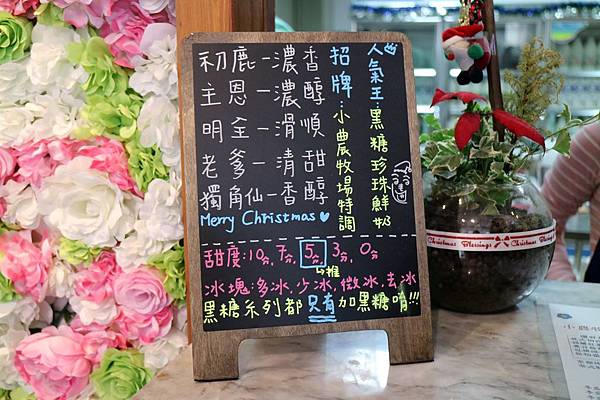 初鹿—濃香
主恩—濃醇
明全—滑順
老爹—清甜
獨角仙—香醇
Merry Christmas
招牌:小農牧場特調
人氣王:黑糖珍珠鮮奶
甜度:10分,7分,5分,3分,0分
↳推
冰塊:多冰,少冰,微冰,去冰
黑糖系列都只有加黑糖唷!!!
Christmas Blessings Christmas